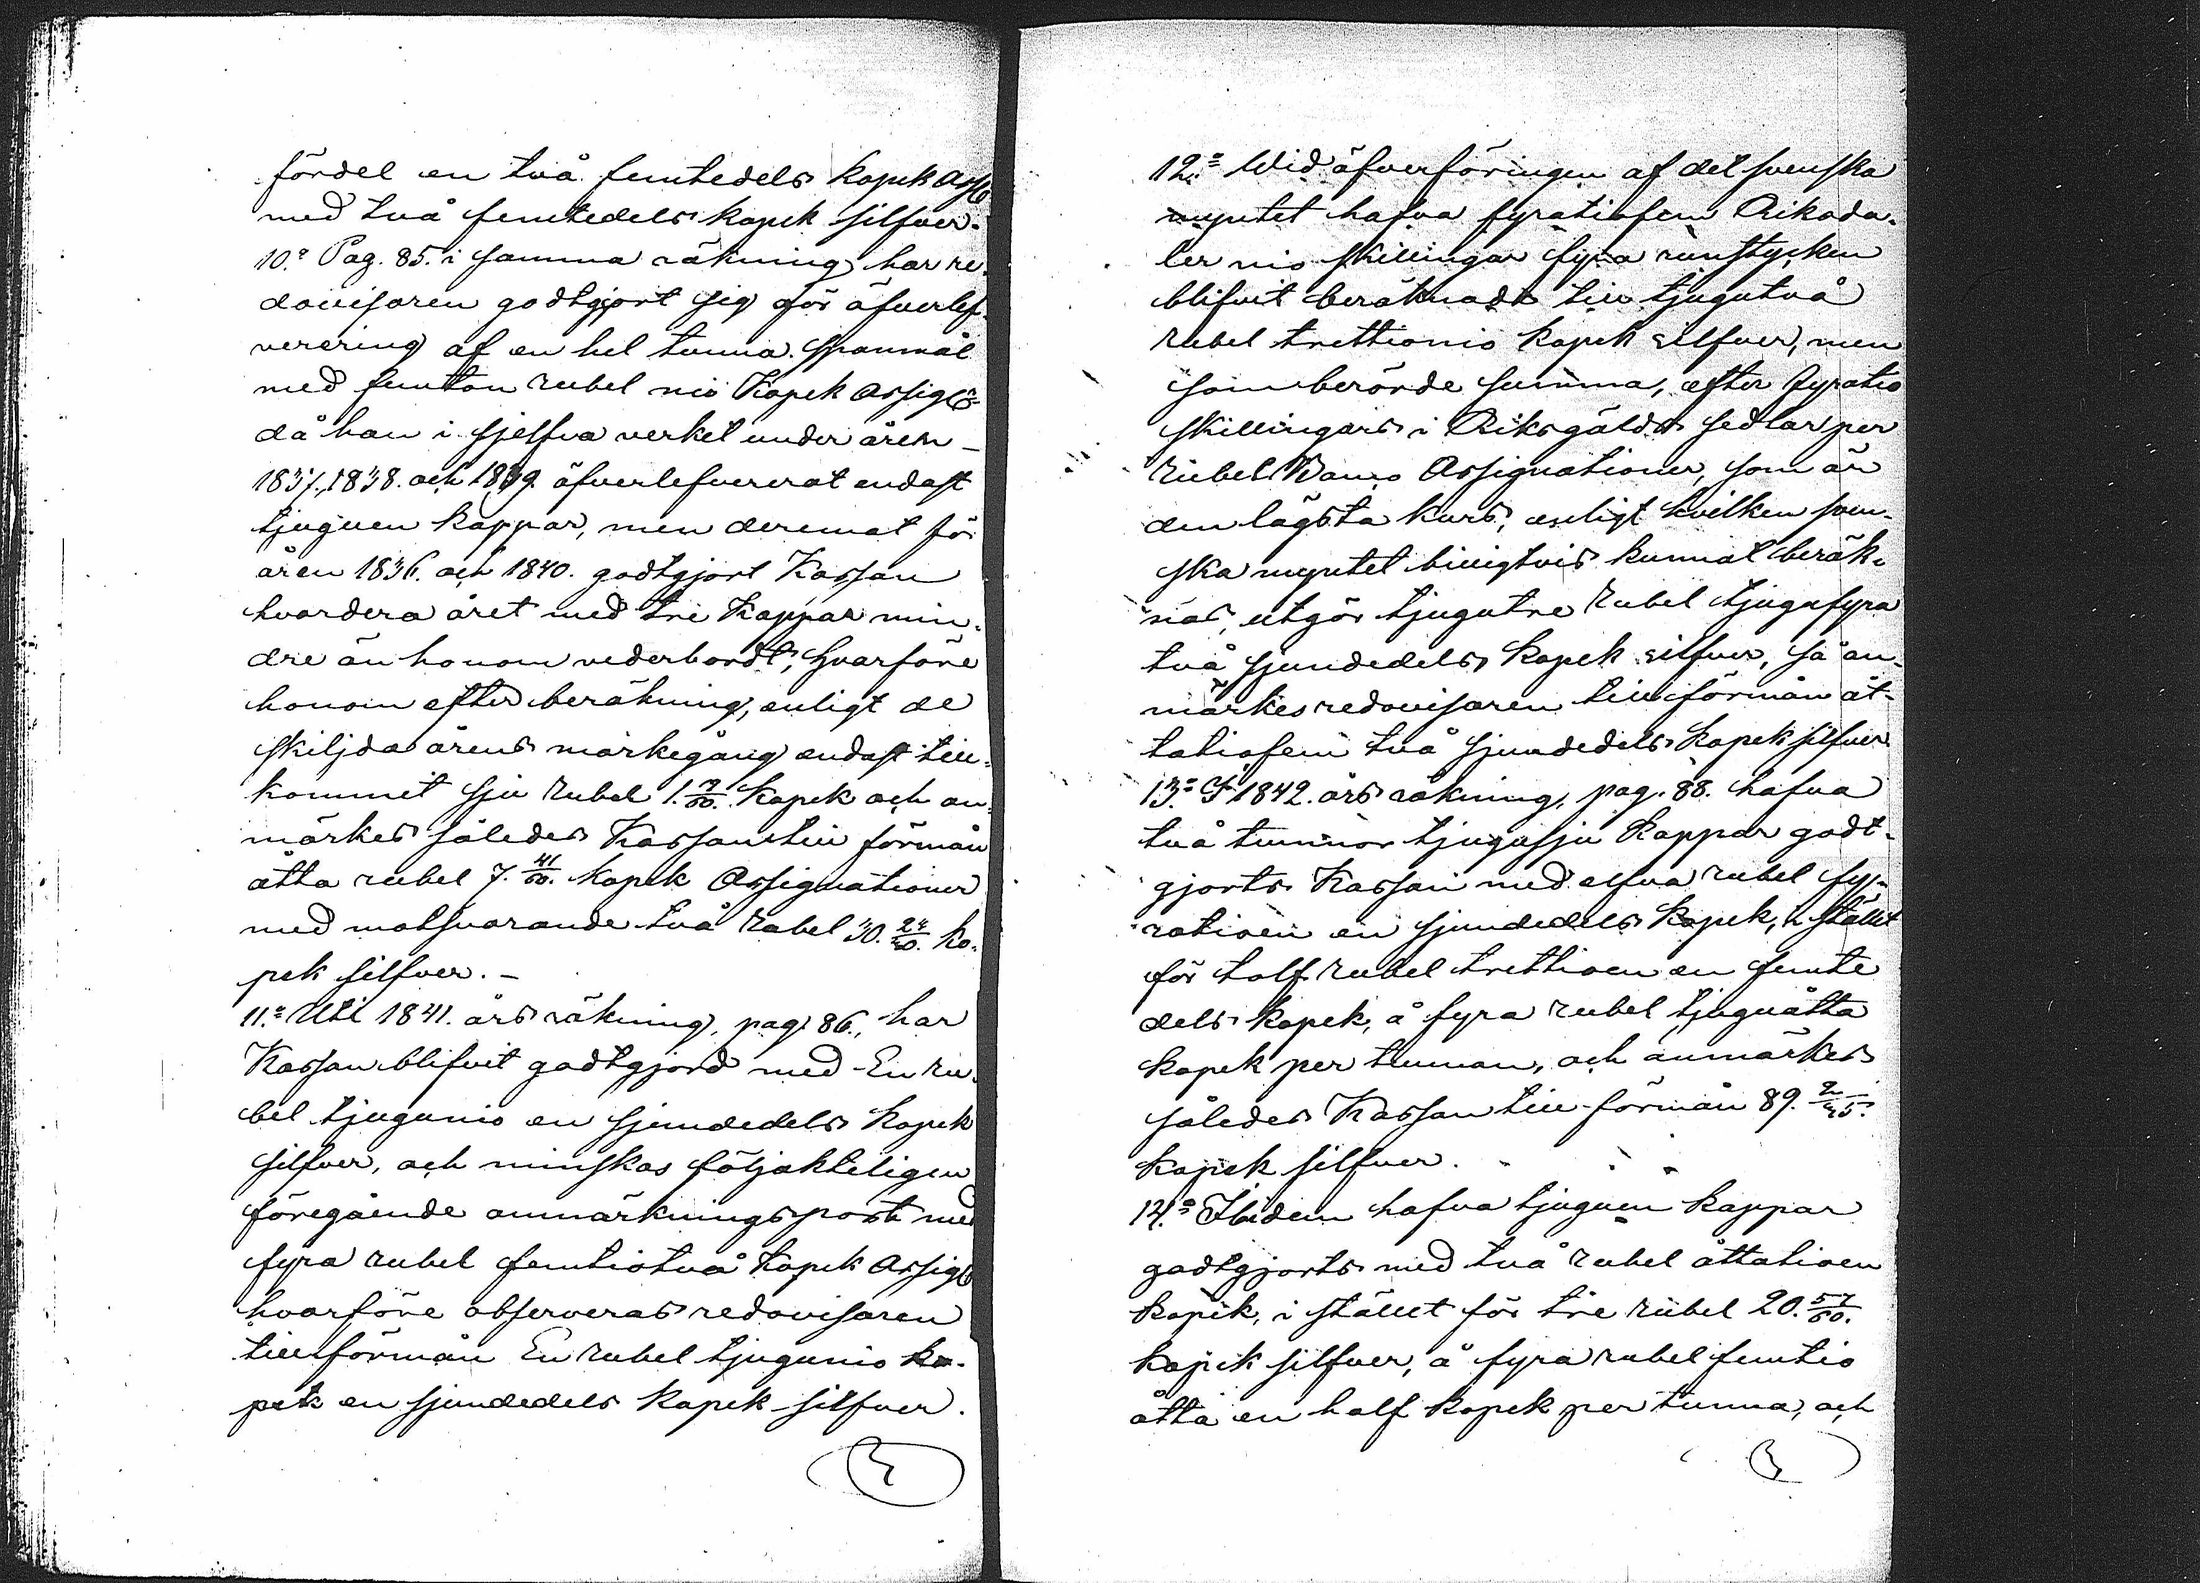 fördel en två femtedels kopek Ass.
med två femtedels kopek silfver.
10.o Pag. 85. i samma räkning har re-
dovisaren godtgjort sig för öfverlef-
verering af en hel tunna spanmål
med femton rubel nio Kopek Assig.
då han i sjelfva verket under åren –
1837., 1838. och 1839. öfverlefvererat endast
tjuguen kappar, men deremot för
åren 1836. och 1840. godtgjort Kassan
hvardera året med tre Kappar min-
dre än honom vederbordt, hvarföre
honom efter beräkning, enligt de
skiljda årens markegång endast till-
kommet sju rubel 1. 9/60. kopek och an-
märkes således Kassan till förmån
åtta rubel 7. 41/60. kopek Assignationer
med motsvarande två rubel 30. 24/40. ko-
pek silfver. –
11.o Uti 1841. års räkning, pag. 86., har
Kassan blifvit godtgjord med En ru-
bel tjugunio en sjundedels kopek
silfver, och minskas följakteligen
föregående anmärkningspost med
fyra rubel femtiotvå kopek Assig.
hvarföre observeras redovisaren
till förmån En rubel tjugunio ko-
pek en sjundedels kopek silfver.
12.o Wid öfverföringen af det svenska
myntet hafva fyratiofem Riksda-
ler nio skillingar fyra runstycken
blifvit beräknadt till tjugutvå
rubel trettionio kopek silfver, men
som berörde summa, efter fyratio
skillingars i Riksgälds sedlar per
Rubel Banco Assignationer, som är
den lägsta kurs, enligt hvilken sven-
ska myntet billigtvis kunnat beräk-
nas, utgör tjugutre rubel tjugufyra
två sjundedels kopek silfver, så an-
märkes redovisaren till förmån åt-
tatiofem två sjundedels kopek silfver
13.o I 1842. års räkning, pag. 88. hafva
två tunnor tjugusju kappar godt-
gjorts Kassan med elfva rubel fy-
ratioen en sjundedels kopek, i stället
för tolf rubel trettioen en femte
dels kopek, å fyra rubel tjuguåtta
kopek per tunnan, och anmärkes
således Kassan till förmån 89. 2/45.
kopek silfver.
14.o Ibidem hafva tjuguen kappar
godtgjorts med två rubel åttatioen
kopek, i stället för tre rubel 20. 57/60.
kopek silfver, å fyra rubel femtio
åtta en half kopek per tunna, och